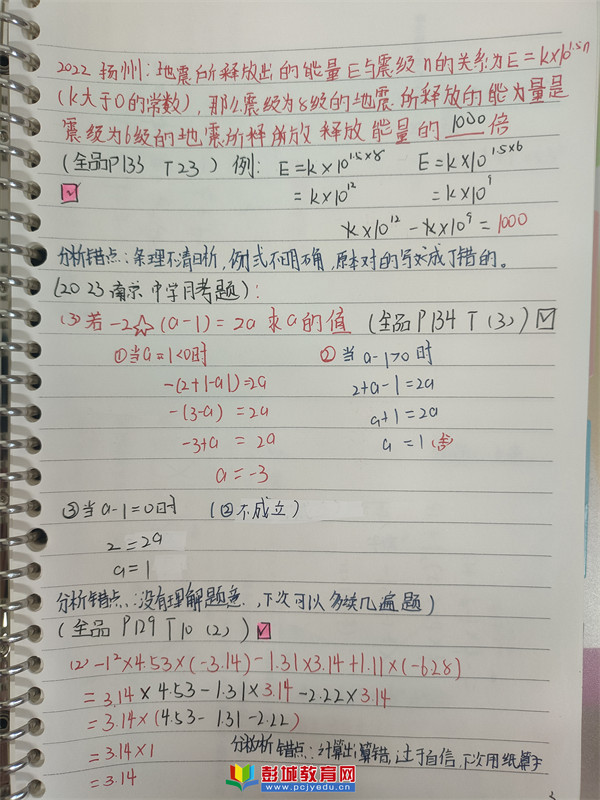 2022 扬州：地震所释放出的能量E与震级n的关系为E=k×10^1.5n
(k大于0的常数)，那么震级为8级的地震所释放的能为量是
震级为6级的地震所释放释放能量的 1000 倍
(全品P133 T23) 例： E=k×10^1.5×8 E=k×10^1.5×6
=k×10^12 =k×10^9
k×10^12-k×10^9=1000
分析错点：条理不清晰，例式不明确，原本对的写成了错的。
(2023南京中学月考题)：
(3)若-2☆(a-1)=2a 求a的值 (全品P134 T(3)) ☑
①当a=1<0时 ②当a-1>0时
-(2+|1-a|)=2a 2+a-1=2a
-(3-a)=2a a+1=2a
-3+a=2a a=1(舍)
a=-3
③当a-1=0时 (②不成立)
2=2a
a=1
分析错点：没有理解题意，下次可以多读几遍题)
(全品P129 T10(2)) ☑
(2)-1²×4.53×(-3.14)-1.31×3.14+1.11×(-6.28)
=3.14×4.53-1.31×3.14-2.22×3.14
=3.14×(4.53-1.31-2.22)
=3.14×1 分析错点：计算出算错，过于自信，下次用纸算
=3.14
彭城教育网
www.pcjyedu.cn